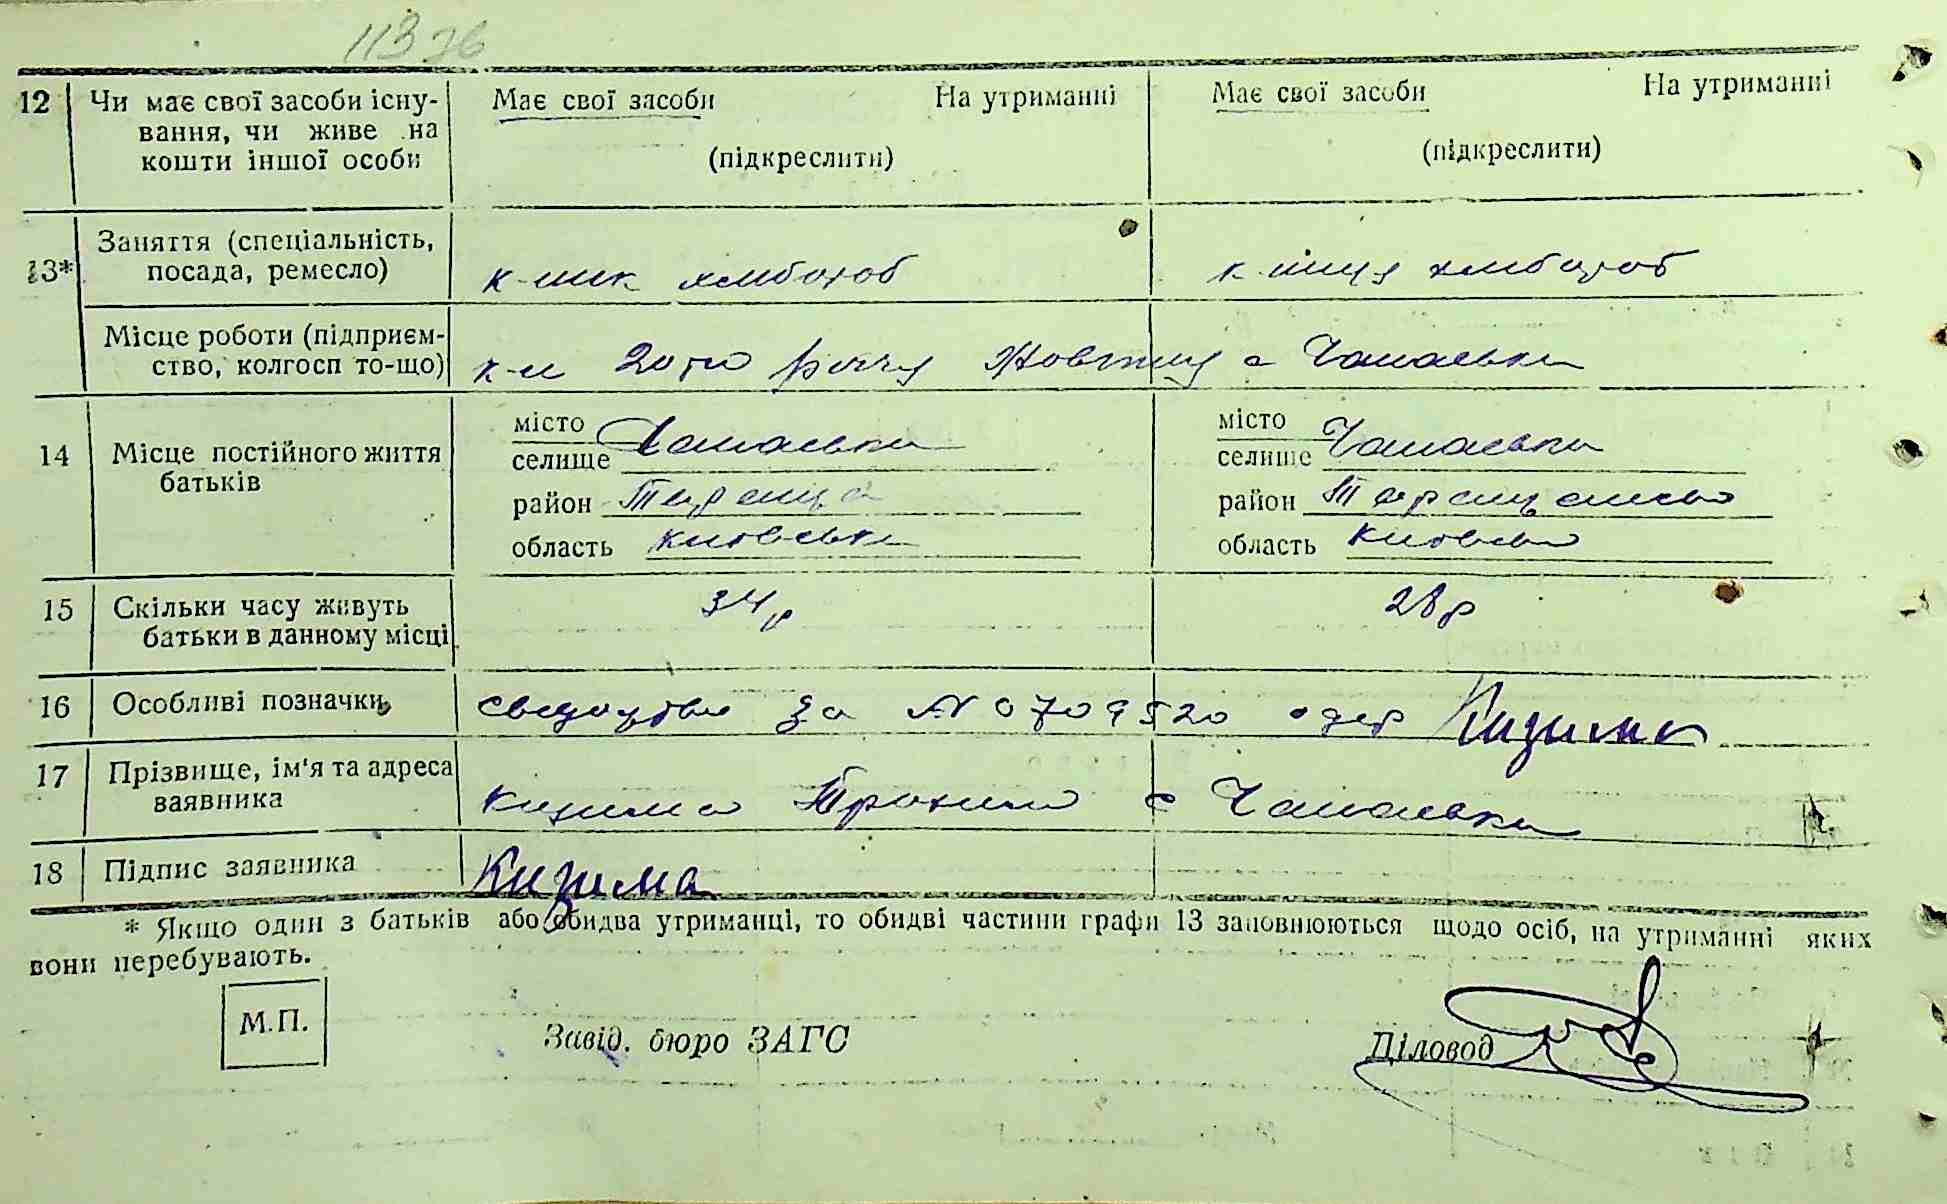 11376
12 Чи має свої засоби існу- Має свої засоби На утриманні Має свої засоби На утриманні
вання, чи живе на
кошти іншої особи (підкреслити) (підкреслити)
13* Заняття (спеціальність,
посада, ремесло) к-ник хлібороб к-ниця хлібороб
Місце роботи (підприєм-
ство, колгосп то-що) к-п 20 ти річчя Жовтня с Чапаєвка
14 Місце постійного життя
батьків
місто Чапаєвка місто Чапаєвка
селище селище
район Тараща район Таращанськ
область Київська область Київськ
15 Скільки часу живуть 34 р 28 р
батьки в данному місці
16 Особливі позначки свидоцтво за № 0709520 одер Кизима
17 Прізвище, ім'я та адреса
заявника Кизима Трохим с Чапаєвка
18 Підпис заявника Кизима
* Якщо один з батьків або обидва утриманці, то обидві частини графи 13 заповнюються щодо осіб, на утриманні яких
вони перебувають.
М.П.
Завід. бюро ЗАГС Діловод